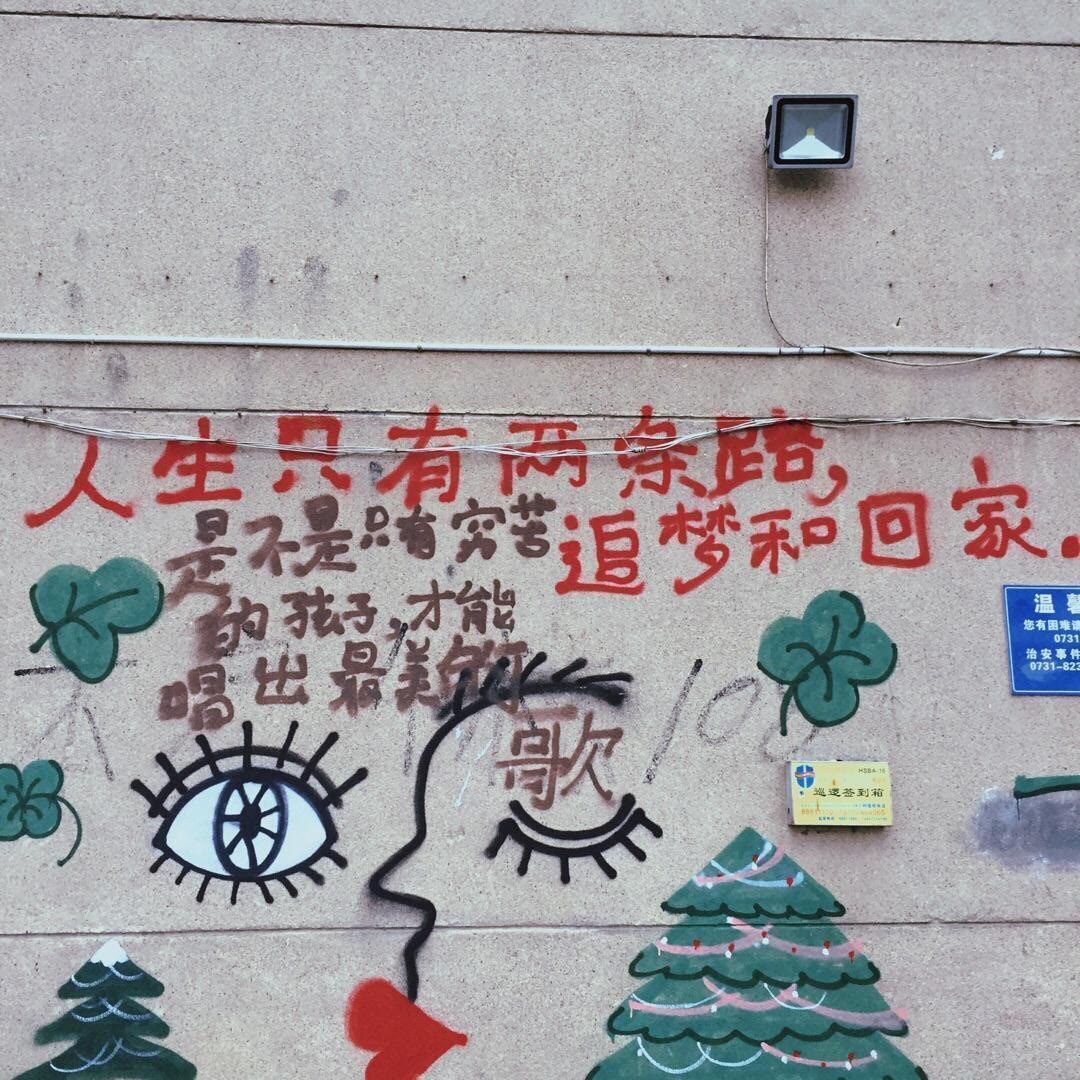 人生只有两条路，
追梦和回家.
是不是只有穷苦
的孩子,才能
唱出最美的
歌
温馨
您有困难请
0731
治安事件
0731-82
HSBA-16
巡逻签到箱